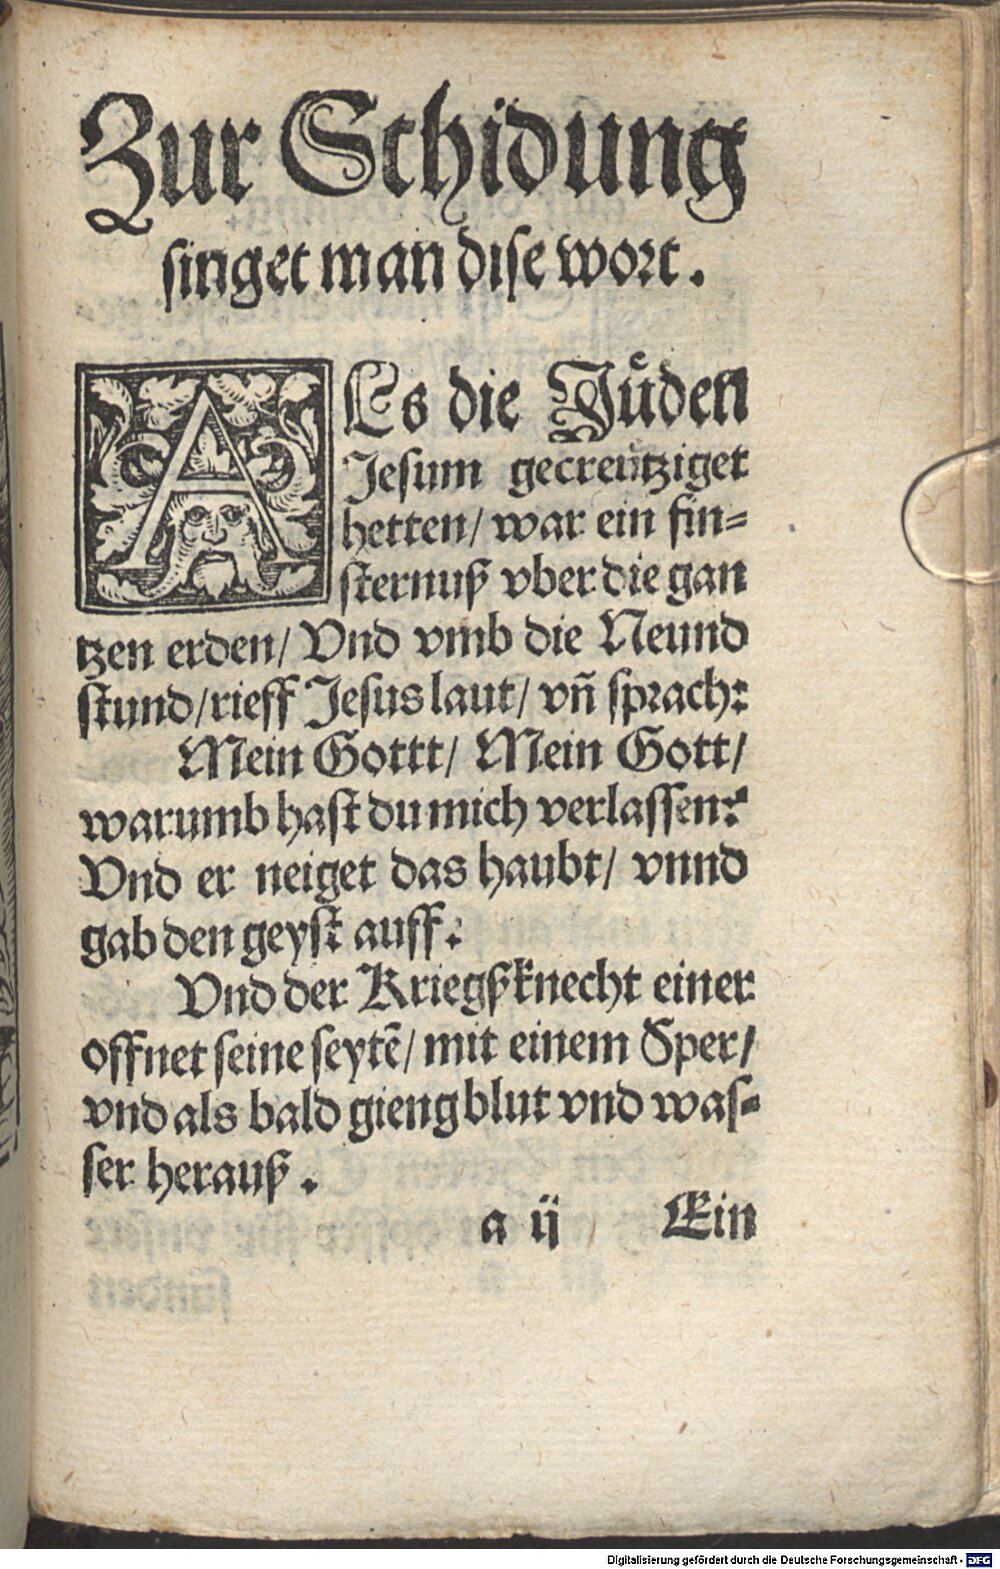 Zur Schidung
singet man dise wort.
ALs die Jüden
Jesum gecreütziget
hetten/ war ein fin=
sternuß vber die gan
tzen erden/ Vnd vmb die Neund
stund/rieff Jesus laut/ vñ sprach:
Mein Gottt/ Mein Gott/
warumb hast du mich verlassen?
Vnd er neiget das haubt/ vnnd
gab den geyst auff.
Vnd der Kriegßknecht einer
offnet seine seytẽ/ mit einem Sper/
vnd als bald gieng blut vnd was=
ser herauß.
a ij Ein
Digitalisierung gefördert durch die Deutsche Forschungsgemeinschaft - DFG